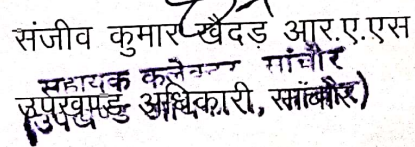 संजीव कुमार खेदड़ आर.ए.एस
सहायक कलेक्टर सांचौर
उपखण्ड अधिकारी, सांचौर)